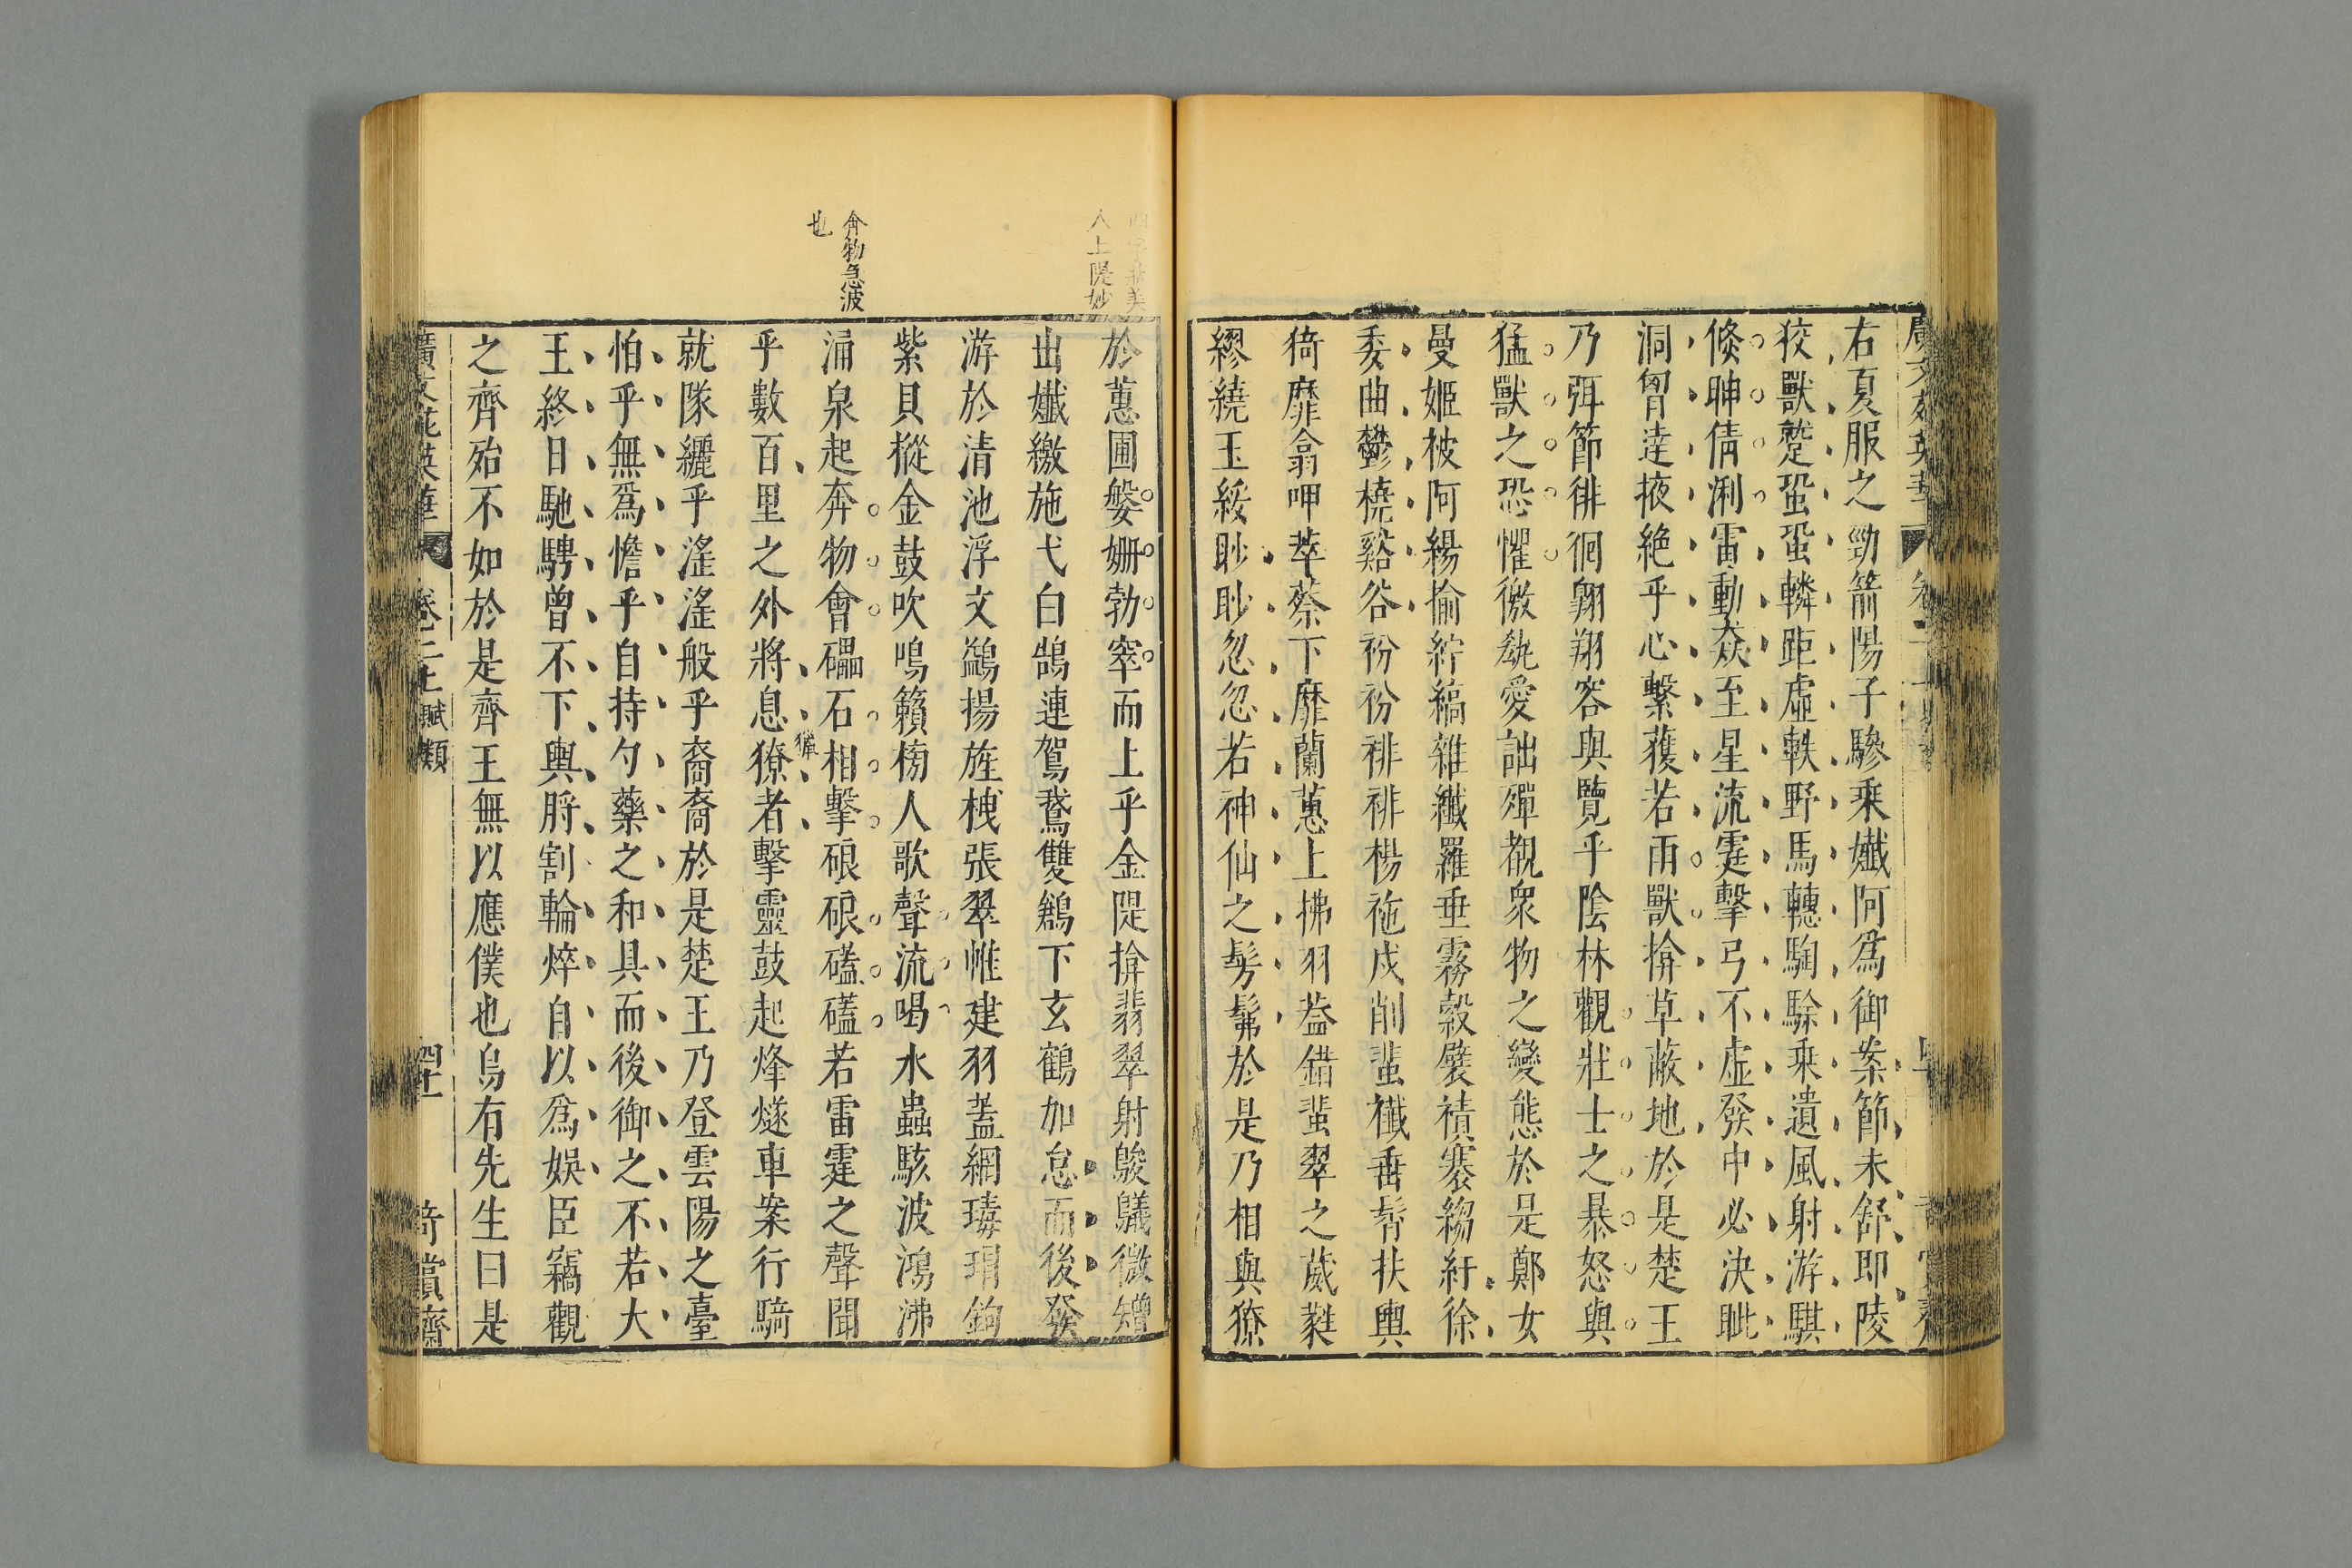 右夏服之勁箭陽子驂乘孅阿爲御案節未舒即陵
狡獸蹵蛩蛩轔距虛軼野馬轊騊駼乘遺風射游騏
倐眒倩浰雷動猋至星流霆擊弓不虛發中必決眦
洞胷達掖絶乎心繫獲若雨獸揜草蔽地於是楚王
乃弭節徘徊翺翔容與覽乎陰林觀壯士之暴怒與
猛獸之恐懼徼𠊬受詘殫覩衆物之變態於是鄭女
曼姬被阿緆揄紵縞雜纖羅垂霧縠襞襀褰縐紆徐
委曲鬱橈谿谷衯衯裶裶楊袘戌削蜚襳垂髾扶輿
猗靡翕呷萃蔡下靡蘭蕙上拂羽葢錯蜚翠之葳蕤
繆繞玉綏眇眇忽忽若神仙之髣髴於是乃相與獠
於蕙圃媻姍勃窣而上乎金隄揜翡翠射鵔鸃微矰
出孅繳施弋白鵠連駕鵞雙鶬下玄鶴加怠而後發
游於清池浮文鷁揚旌栧張翠帷建羽蓋網瑇瑁鉤
紫貝摐金鼓吹鳴籟榜人歌聲流喝水蟲駭波鴻沸
涌泉起奔物會礧石相擊硠硠礚礚若雷霆之聲聞
乎數百里之外將息獠者擊靈鼓起烽燧車案行騎
獵
就隊纚乎淫淫般乎裔裔於是楚王乃登雲陽之臺
怕乎無爲憺乎自持勺藥之和具而後御之不若大
王終日馳騁曾不下輿脟割輪焠自以爲娛臣竊觀
之齊殆不如於是齊王無以應僕也烏有先生曰是
廣文苑英華 卷二上賦類 四十一 奇賞齋
人上隄妙
奔物急波
也